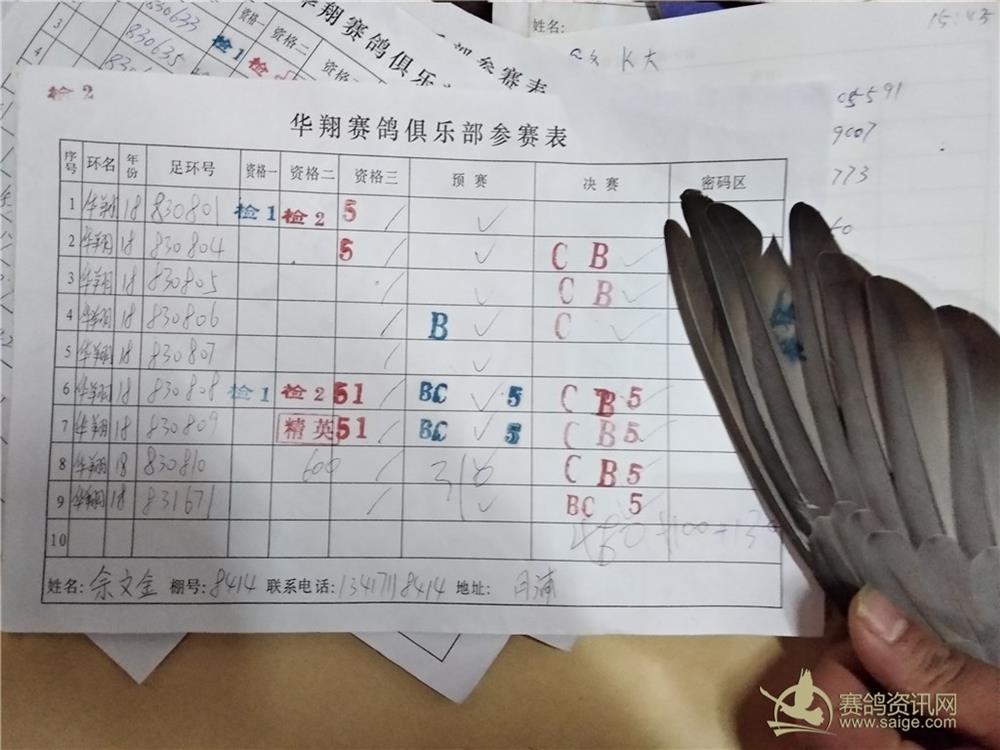 830633
830635
资格一 资格二
检1
华翔赛鸽俱乐
参赛表
姓名:
15:43
K大
05591
9007
773
检2
华翔赛鸽俱乐部参赛表
序号 环名 年份 足环号 资格一 资格二 资格三 预赛 决赛 密码区
1 华翔 18 830801 检1 检2 5 / ✓
2 华翔 18 830804 5 / ✓ C B ✓
3 华翔 18 830805 / ✓ C B ✓
4 华翔 18 830806 / B ✓ C ✓
5 华翔 18 830807 / ✓
6 华翔 18 830808 检1 检2 51 / BC ✓ 5 C B 5
7 华翔 18 830809 精英 51 / BC ✓ 5 C B 5
8 华翔 18 830810 600 / C B 5
9 华翔 18 831671 / ✓ BC 5
10
姓名: 余文金 棚号: 8414 联系电话: 13417118414 地址: 月浦
赛鸽资讯网
www.saige.com